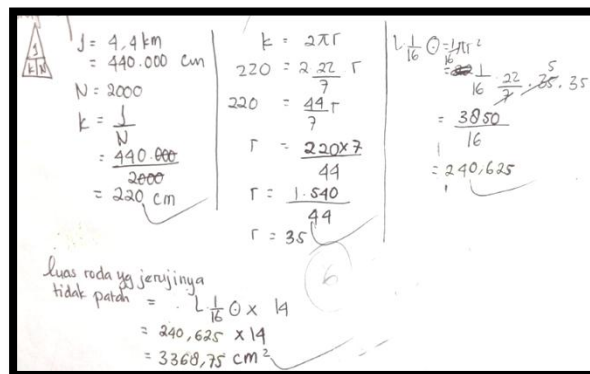 J
K N
J = 4,4 km
= 440.000 cm
N = 2000
k = J/N
= 440.000/2000
= 220 cm
k = 2πr
220 = 2 22/7 r
220 = 44/7 r
r = 220×7/44
r = 1.540/44
r = 35
L 1/16 ⊙ = 1/16 πr²
= 1/16 . 22/7 . 35 . 35
5
= 3850/16
= 240,625
6
luas roda yg jerujinya
tidak patah = L 1/16 ⊙ × 14
= 240,625 × 14
= 3368,75 cm²